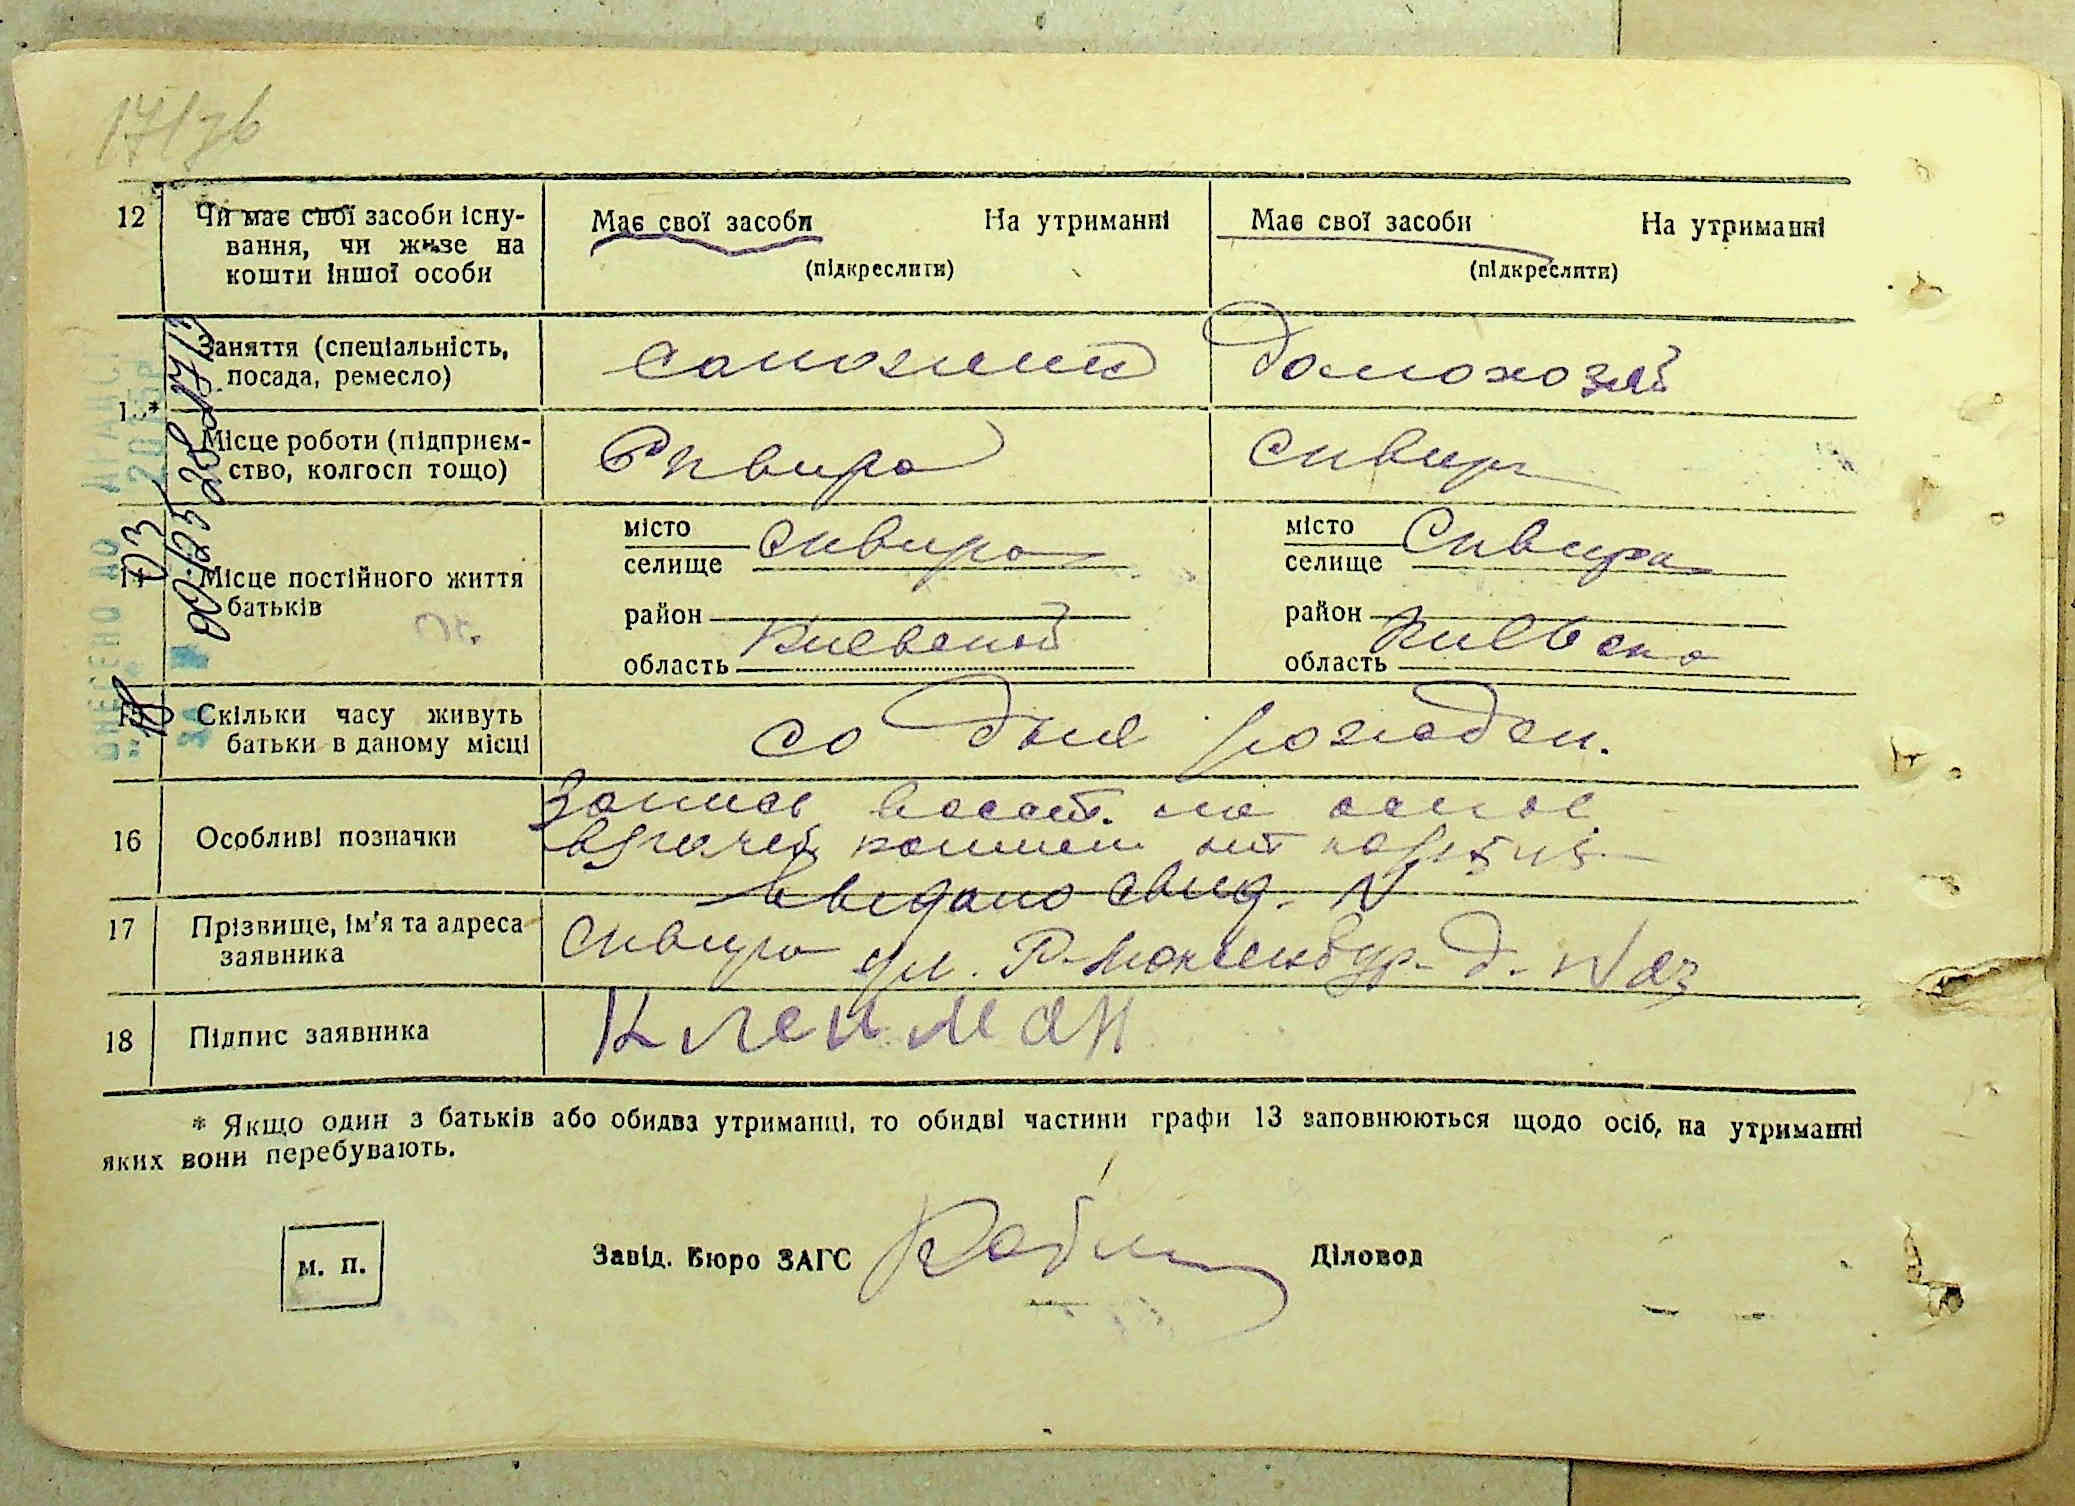 171зв
12 Чи має свої засоби існу-
вання, чи живе на
кошти іншої особи
Має свої засоби На утриманні
(підкреслити)
Має свої засоби На утриманні
(підкреслити)
13*
Заняття (спеціальність,
посада, ремесло)
сапожник
домохозяй
Місце роботи (підприєм-
ство, колгосп тощо)
Сквира
Сквира
14 Місце постійного життя
батьків
місто
селище Сквира
район
область Киевской
місто
селище Сквира
район
область Киевско
15 Скільки часу живуть
батьки в даному місці
со дня рожден.
16 Особливі позначки
Запись восст. на основ
врачеб комисии от
Видано свид. N
17 Прізвище, ім'я та адреса
заявника
Сквира ул. Р-Люксенбур- д. N
18 Підпис заявника
Клейман
* Якщо один з батьків або обидва утриманці, то обидві частини графи 13 заповнюються щодо осіб, на утриманні
яких вони перебувають.
м. п.
Завід. Бюро ЗАГС
Діловод